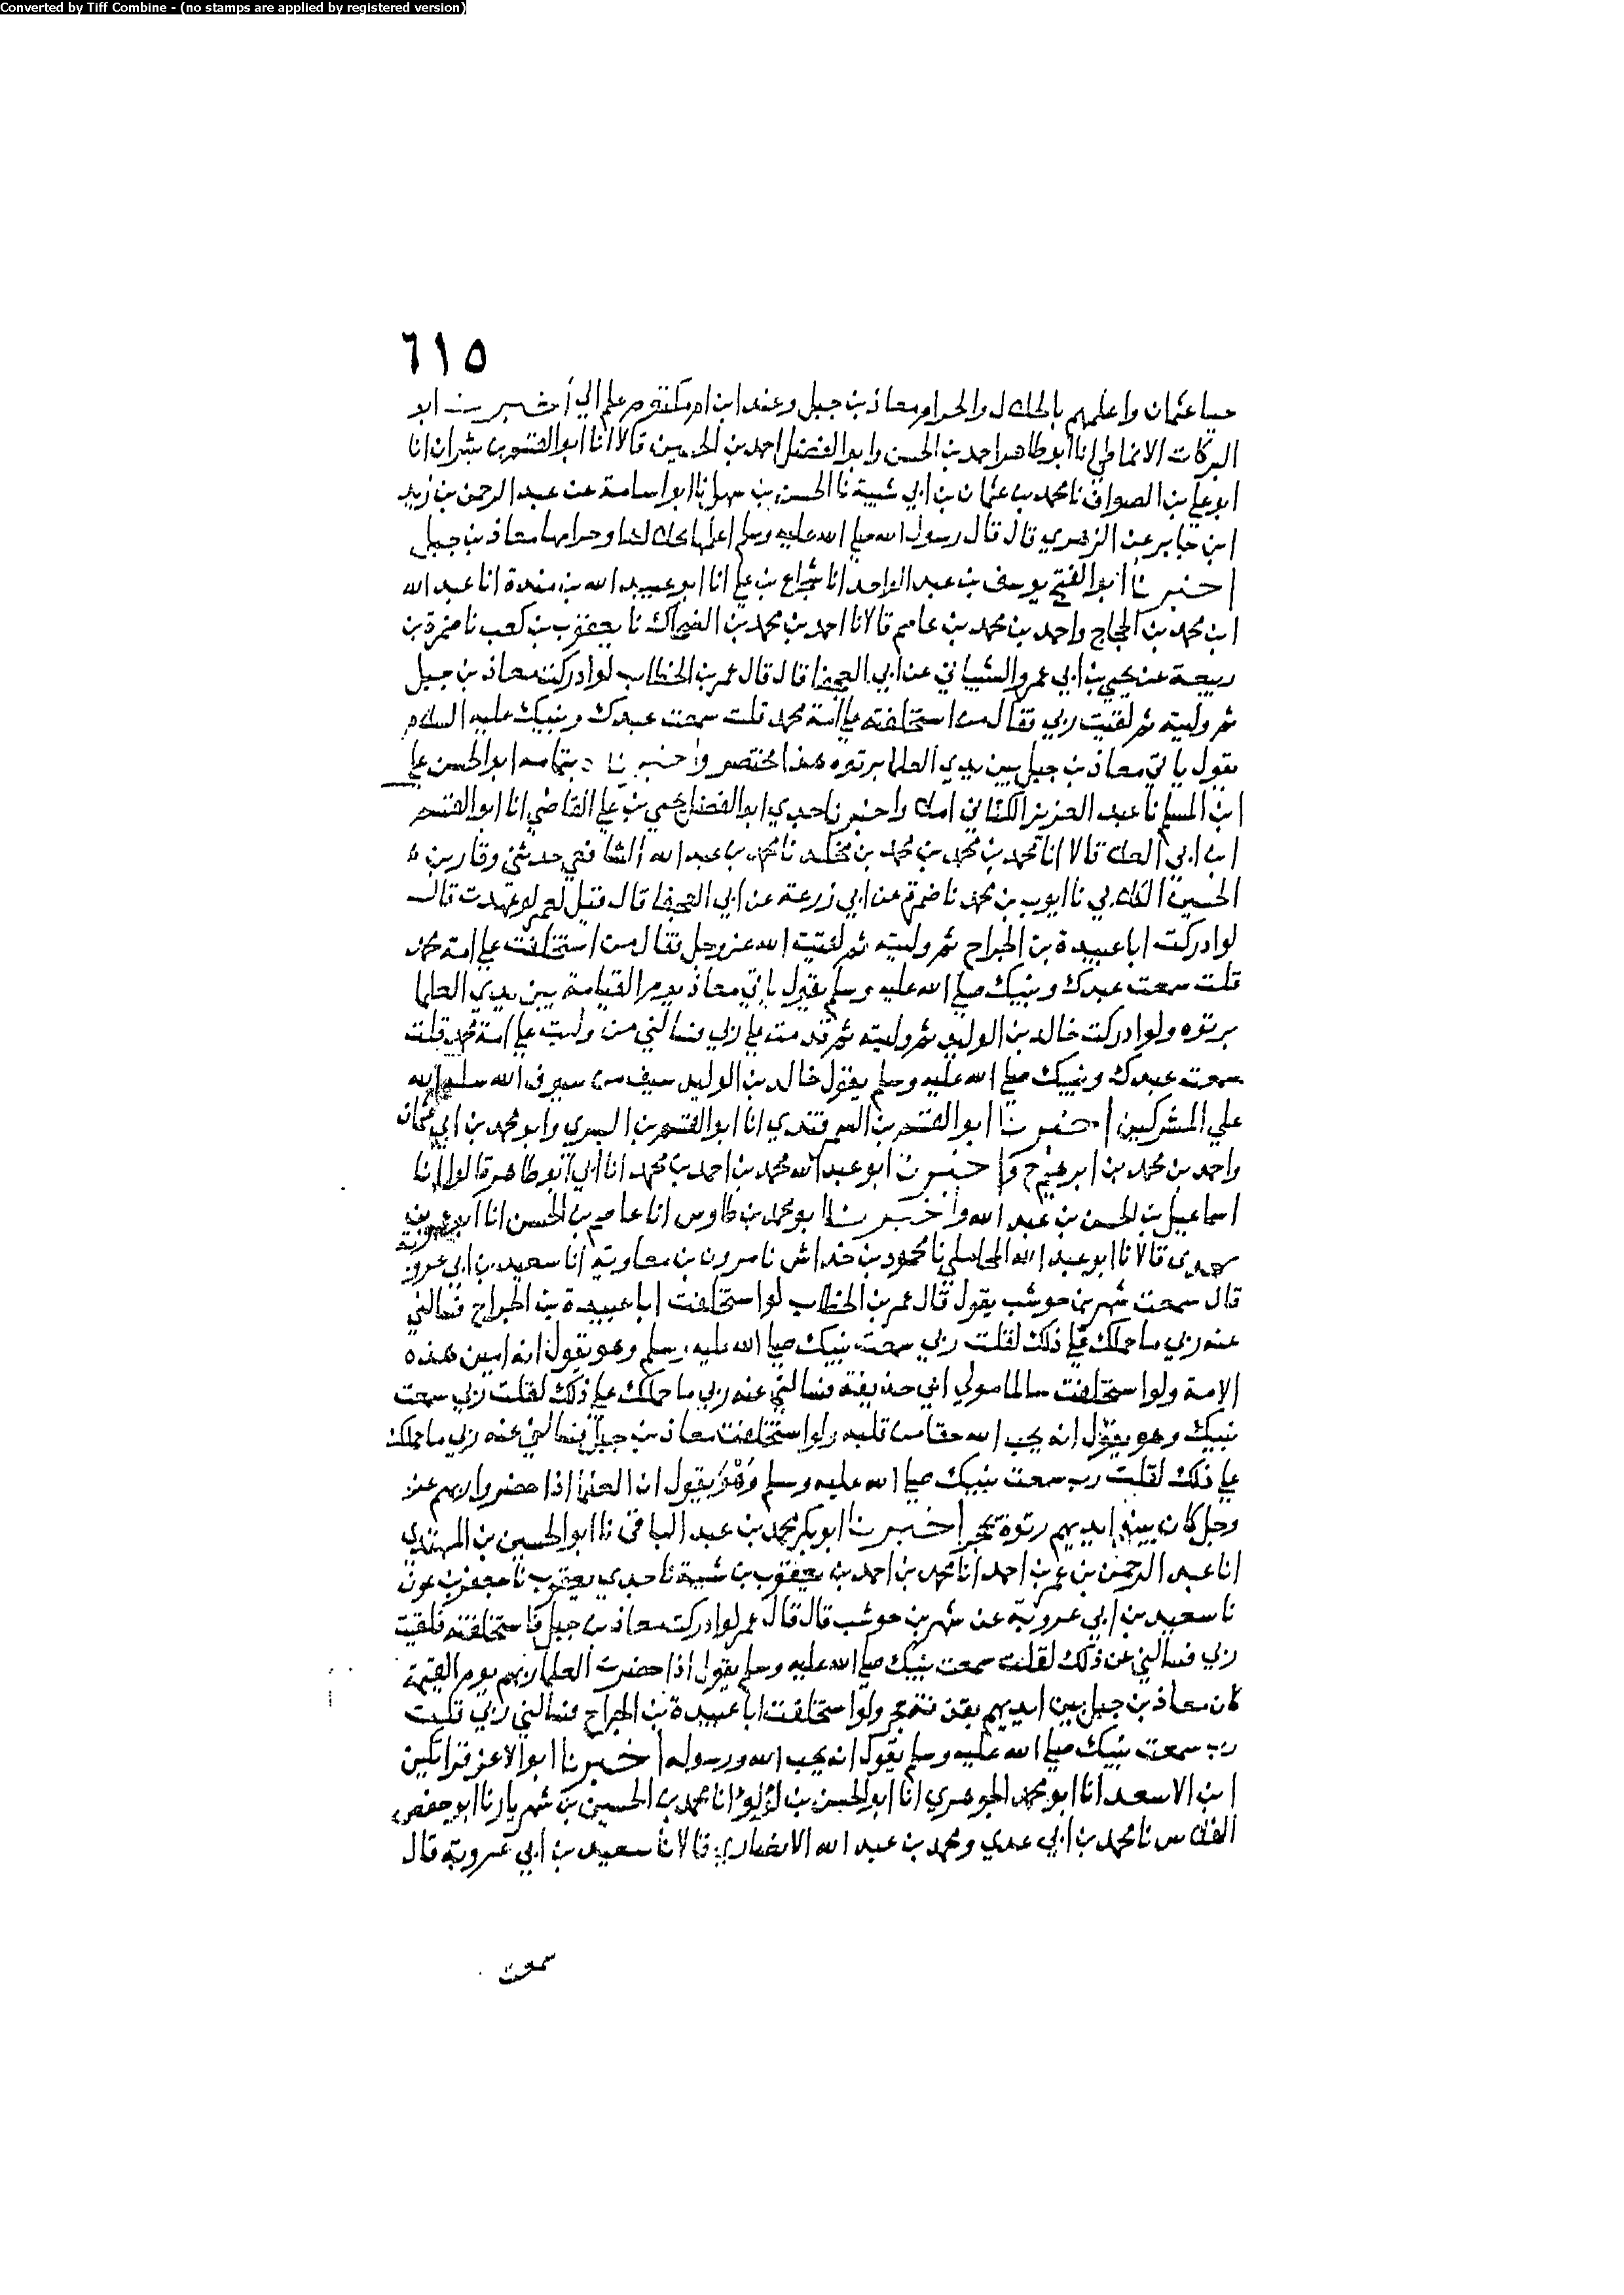 Converted by Tiff Combine - (no stamps are applied by registered version)
٦١٥
حيا عثمان واعلمهم بالحلال والحرام معاذ بن جبل وعند ابن ام مكتوم علم الي أخبرنا ابو
البركات الانماطي انا ابو طاهر احمد بن الحسن وابو الفضل احمد بن الحسين قالا انا ابو القسم بن بشران انا
ابو علي بن الصواف نا محمد بن عثمان بن ابي شيبة نا الحسن بن سهل نا ابو اسامة عن عبد الرحمن بن زيد
ابن جابر عن الزهري قال قال رسول الله صلى الله عليه وسلم اعلمها بحلالها وحرامها معاذ بن جبل
اخبرنا ابو الفتح يوسف بن عبد الواحد انا شجاع بن علي انا ابو عبيد الله بن مندة انا عبد الله
ابن محمد بن الحجاج واحمد بن محمد بن عاصم قالا نا احمد بن محمد بن الضحاك نا يعقوب بن كعب نا ضمرة بن
ربيعة عن يحيى بن ابي عمرو الشيباني عن ابي العجفا قال قال عمر بن الخطاب لو ادركت معاذ بن جبل
ثم وليته ثم لقيت ربي فقال من استخلفته على امة محمد قلت سمعت عبدك ونبيك عليه السلام
يقول ياتي معاذ بن جبل بين يدي العلما برتوه هذا مختصر واخبرنا بتمامه ابو الحسن علي
ابن المسلم نا عبد العزيز الكتاني املا واخبرنا جدي ابو الفضل يحيى بن علي القاضي انا ابو القسم
ابن ابي العلا قالا انا محمد بن محمد بن محمد بن مخلد نا محمد بن عبد الله الشافعي حدثني وقار بن
الحسين الكلابي نا ايوب بن محمد نا ضمرة عن ابي زرعة عن ابي العجفا قال قيل لعمر لو عهدت قال
لو ادركت ابا عبيدة بن الجراح ثم وليته ثم لقيت الله عز وجل فقال من استخلفت على امة محمد
قلت سمعت عبدك ونبيك صلى الله عليه وسلم يقول ياتي معاذ يوم القيامة بين يدي العلما
برتوه ولو ادركت خالد بن الوليد ثم وليته ثم قدمت على ربي فسالني من وليت على امة محمد قلت
سمعت عبدك ونبيك صلى الله عليه وسلم يقول خالد بن الوليد سيف من سيوف الله سله الله
علي المشركين اخبرنا ابو القسم بن السمرقندي انا ابو القسم بن البسري وابو محمد بن ابي عثمان
واحمد بن محمد بن ابرهيم ح واخبرنا ابو عبد الله محمد بن احمد بن محمد انا ابي ابو طاهر قالوا انا
اسماعيل بن الحسن بن عبد الله واخبرنا ابو محمد بن طاوس انا عاصم بن الحسن انا ابو عمر بن
مهدي قالا نا ابو عبد الله المحاملي نا محمود بن خداش نا مرون بن معاوية انا سعيد بن ابي عروبة
قال سمعت شهر بن حوشب يقول قال عمر بن الخطاب لو استخلفت ابا عبيدة بن الجراح فسالني
عنه ربي ما حملك على ذلك لقلت ربي سمعت نبيك صلى الله عليه وسلم وهو يقول انه امين هذه
الامة ولو استخلفت سالما مولي ابي حذيفة فسالني عنه ربي ما حملك علي ذلك لقلت ربي سمعت
نبيك وهو يقول انه يحب الله حقا من قلبه ولو استخلفت معاذ بن جبل فسالني عنه ربي ما حملك
علي ذلك لقلت رب سمعت نبيك صلى الله عليه وسلم وهو يقول ان العلما اذا حضروا ربهم عز
وجل كان بين ايديهم رتوة بحجر اخبرنا ابو بكر محمد بن عبد الباقي نا ابو الحسين بن المهتدي
انا عبد الرحمن بن عمر بن احمد انا محمد بن احمد بن يعقوب بن شيبة نا جدي يعقوب نا جعفر بن عون
نا سعيد بن ابي عروبة عن شهر بن حوشب قال قال عمر لو ادركت معاذ بن جبل فاستخلفته فلقيت
ربي فسالني عن ذلك لقلت سمعت نبيك صلى الله عليه وسلم يقول اذا حضرت العلما ربهم يوم القيمة
كان معاذ بن جبل بين ايديهم بحجر ولو استخلفت ابا عبيدة بن الجراح فسالني ربي قلت
رب سمعت نبيك صلى الله عليه وسلم يقول انه يحب الله ورسوله اخبرنا ابو الاعز قراتكين
ابن الاسعد انا ابو محمد الجوهري انا ابو الحسن بن لؤلؤ انا محمد بن الحسين بن شهريار نا ابو حفص
الفلاس نا محمد بن ابي عدي ومحمد بن عبد الله الانصاري قالا نا سعيد بن ابي عروبة قال
سمعت